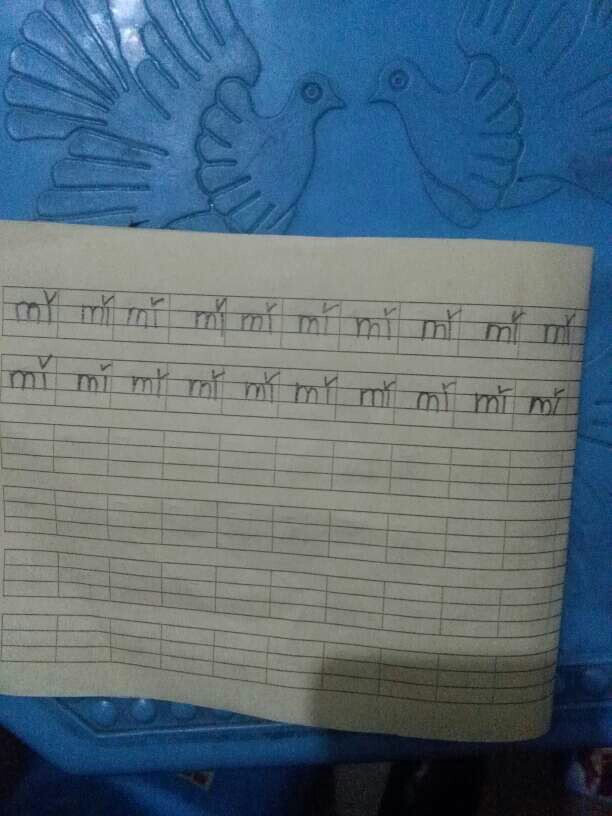 mǐ mǐ mǐ mǐ mǐ mǐ mǐ mǐ mǐ mǐ
mǐ mǐ mǐ mǐ mǐ mǐ mǐ mǐ mǐ mǐ